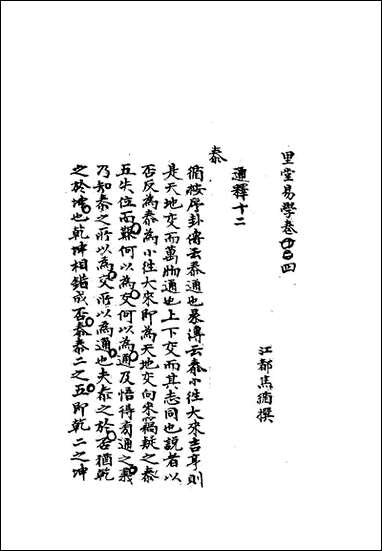 里堂易學卷四
江都焦循撰
通釋十二
泰
循按序卦傳云泰通也彖傳云泰小往大來吉亨則
是天地交而萬物通也上下交而其志同也說者以
否反為泰為小往大來即為天地交向來竊疑之泰
五失位而艱何以為交何以為通及悟得旁通之義
乃知泰之所以為交所以為通也夫泰之於否猶乾
之於坤也乾坤相錯成否泰泰二之五即乾二之坤